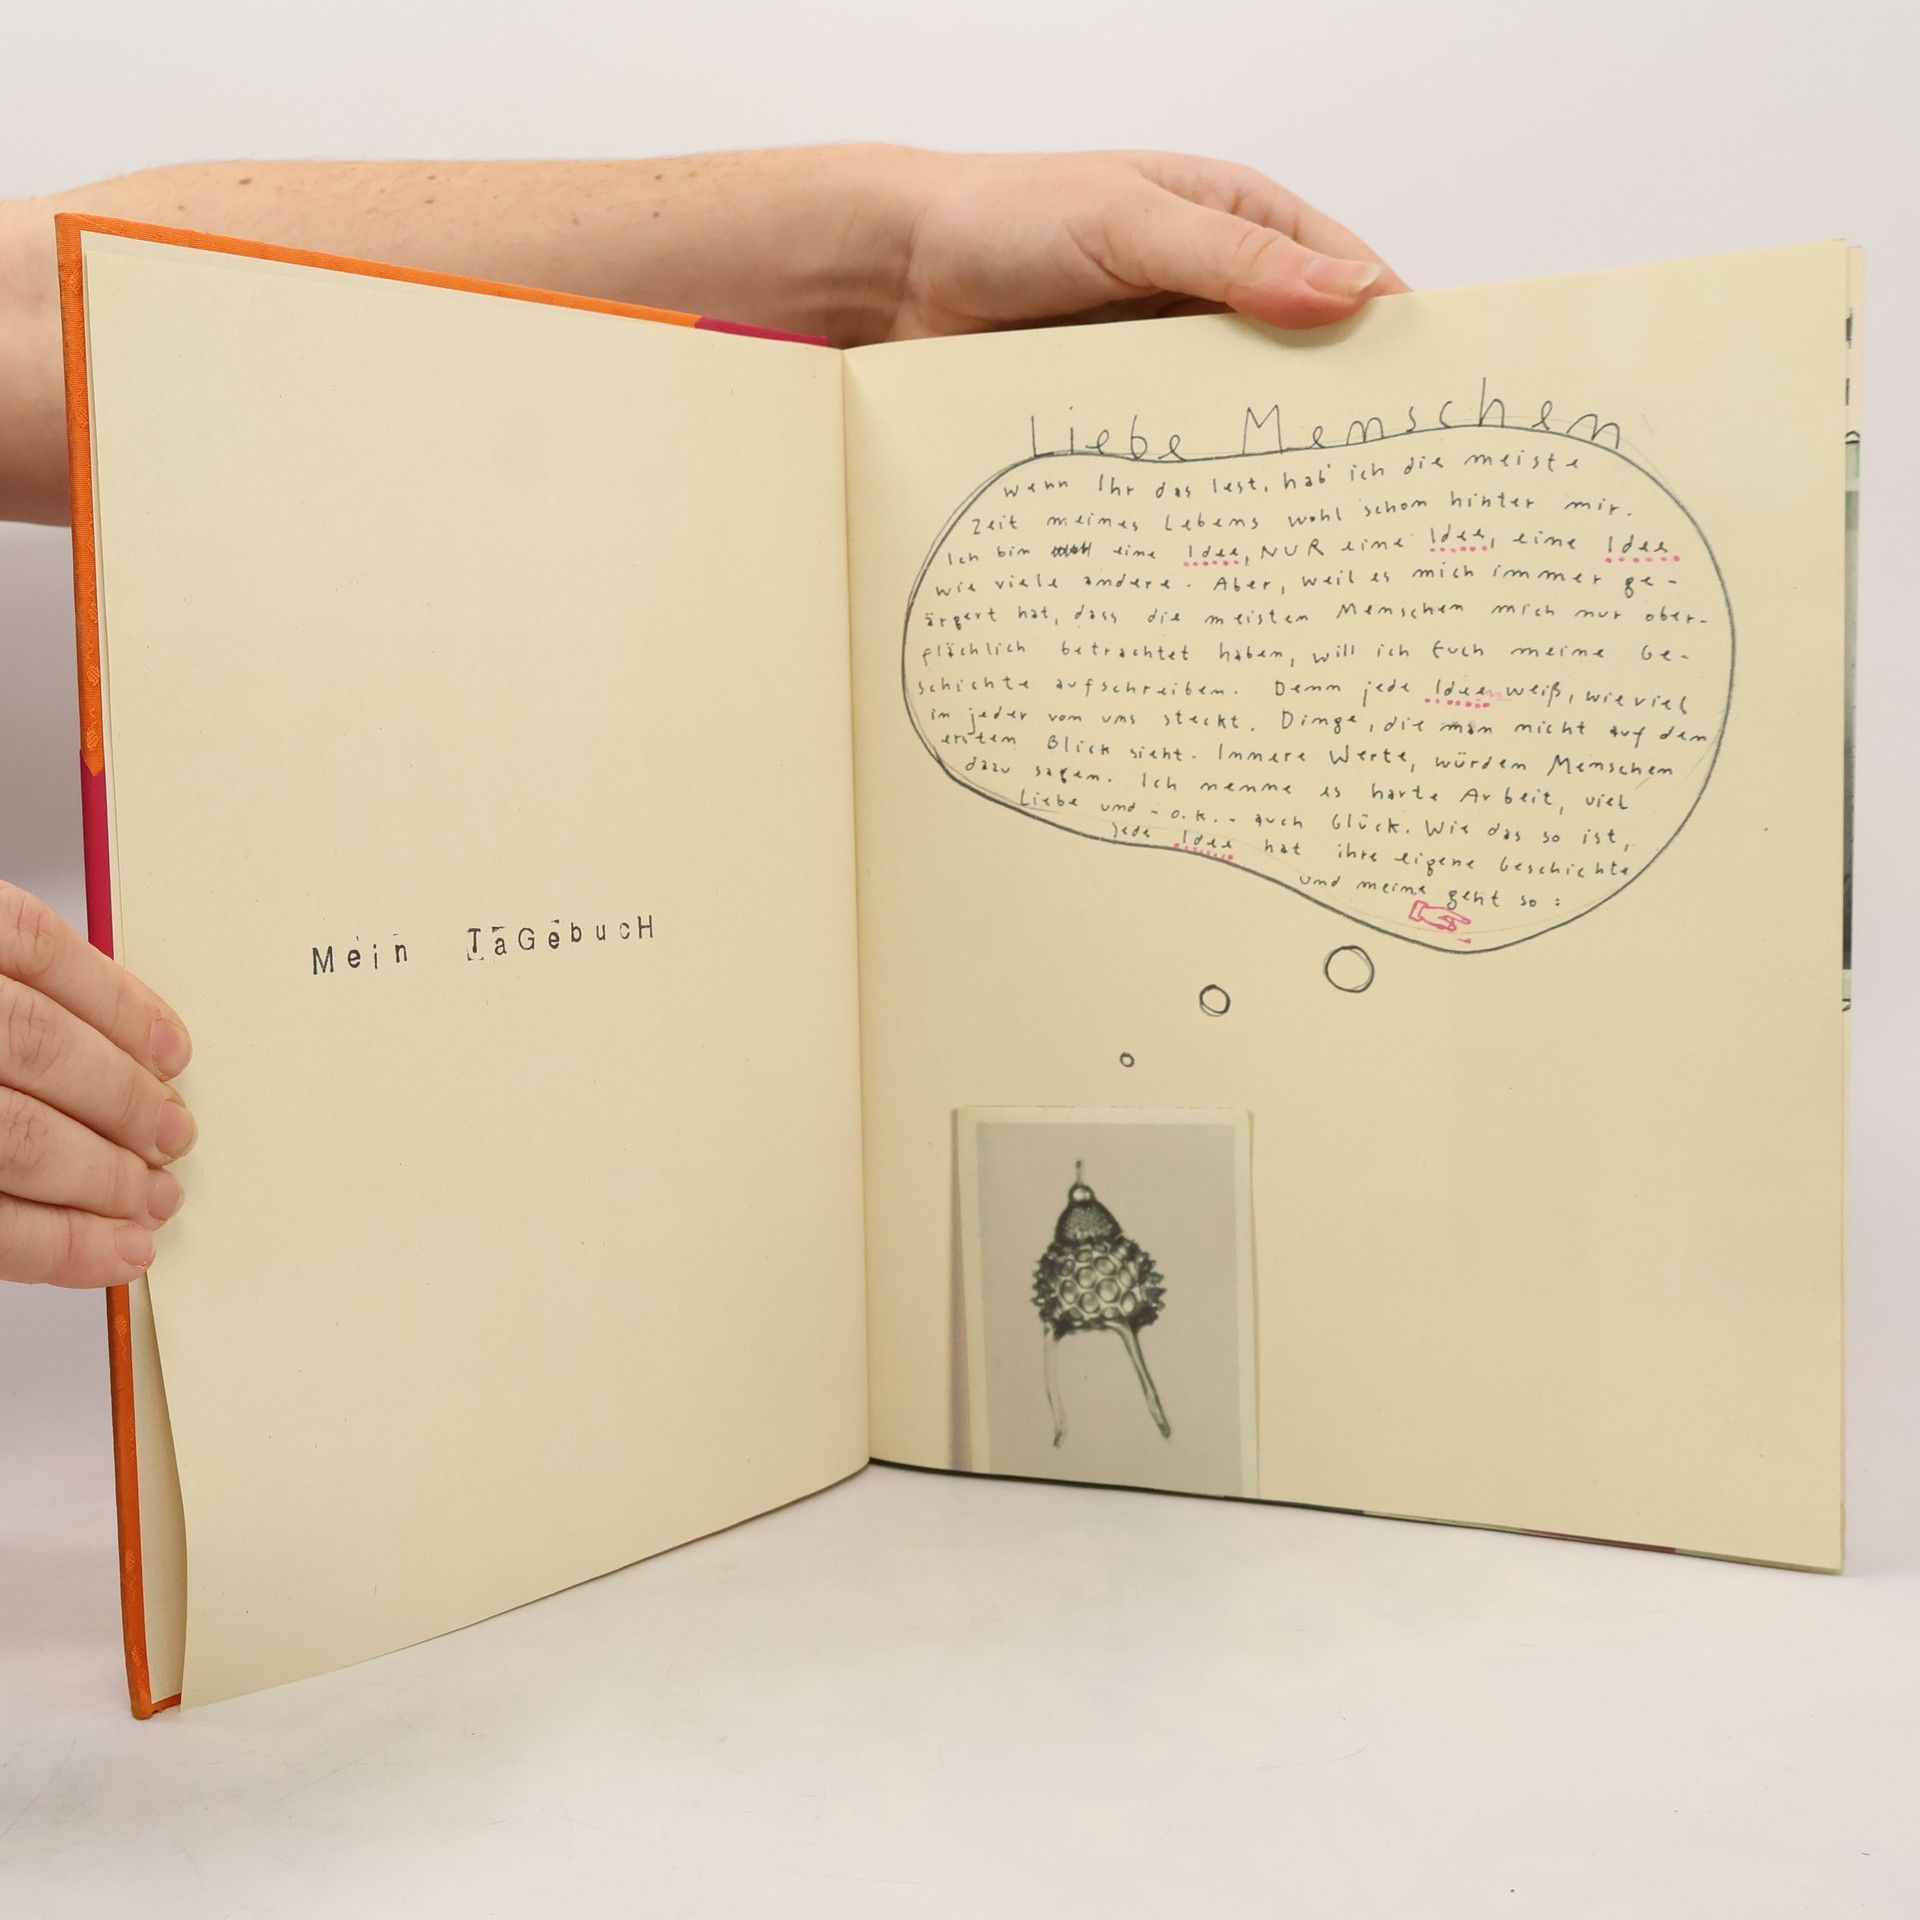 Mein TaGebucH
Liebe Menschen
wenn Ihr das lest, hab' ich die meiste
Zeit meines Lebens wohl schon hinter mir.
Ich bin eine Idee, NUR eine Idee, eine Idee
wie viele andere. Aber, weil es mich immer ge-
ärgert hat, dass die meisten Menschen mich nur ober-
flächlich betrachtet haben, will ich Euch meine Ge-
schichte aufschreiben. Denn jede Idee weiß, wie viel
in jeder von uns steckt. Dinge, die man nicht auf den
ersten Blick sieht. Innere Werte, würden Menschen
dazu sagen. Ich nenne es harte Arbeit, viel
Liebe und - o.k. - auch Glück. Wie das so ist,
jede Idee hat ihre eigene Geschichte
und meine geht so: